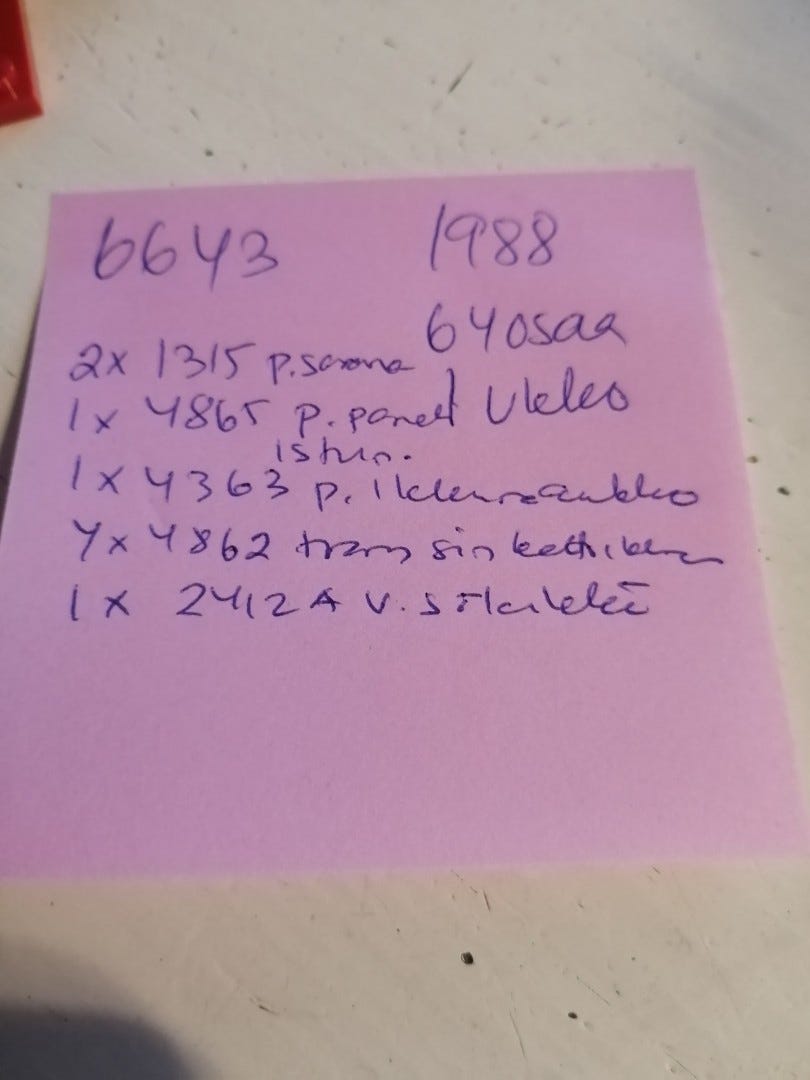 6643 1988
64 osaa
2x 1315 p. sarana
1x 4865 p. paneel 1 Ukko
istuin.
1x 4363 p. ikkunaaukko
4x 4862 trans sin lasi
1x 2412A v. säleikkö